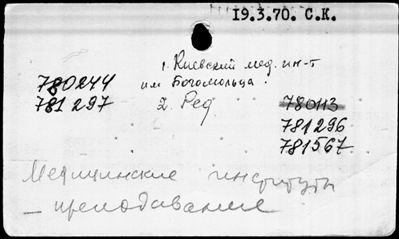 19.3.70. С.К.
1. Киевский мед. ин-т
им Богомольца.
780244
781297
2. Ред
780113
781296
781567
Медицинские институты
— преподавание